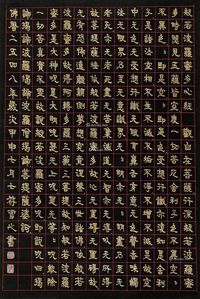 般若波羅蜜多心經 觀自在菩薩行深般若波羅蜜
多時照見五蘊皆空度一切苦厄舍利子色不異空空
不異色色即是空空即是色受想行識亦復如是舍利
子是諸法空相不生不滅不垢不淨不增不減是故空
中无色无受想行識无眼耳鼻舌身意无色聲香味觸
法无眼界乃至无意識界无无明亦无无明盡乃至无
老死亦无老死盡无苦集滅道无智亦无得以无所得
故菩提薩埵依般若波羅蜜多故心无罣礙无罣礙故
无有恐怖遠離顛倒夢想究竟涅槃三世諸佛依般若
波羅蜜多故得阿耨多羅三藐三菩提故知般若波羅
蜜多是大神咒是大明咒是无上咒是无等等咒能除
一切苦真實不虛故說般若波羅蜜多咒即說咒曰揭
諦揭諦波羅揭諦波羅僧揭諦菩提薩婆訶
歲次甲申七月 心書